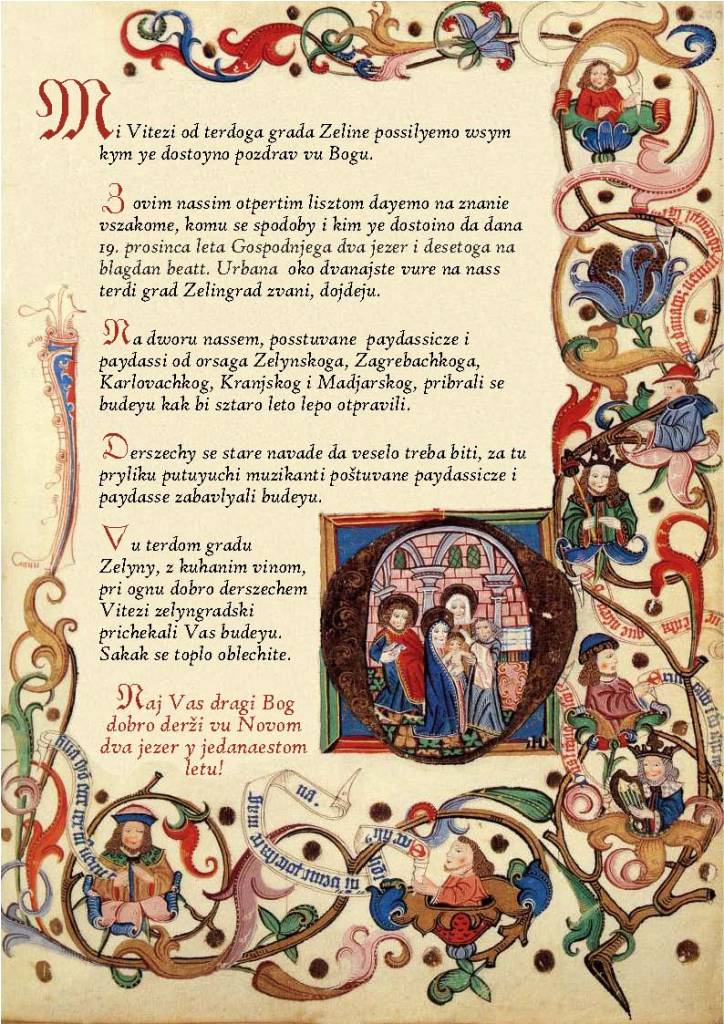 Mi Vitezi od terdoga grada Zeline possilyemo wsym
kym ye dostoyno pozdrav vu Bogu.
Z ovim nassim otpertim lisztom dayemo na znanie
vszakome, komu se spodoby i kim ye dostoino da dana
19. prosinca leta Gospodnjega dva jezer i desetoga na
blagdan beatt. Urbana oko dvanajste vure na nass
terdi grad Zelingrad zvani, dojdeju.
Na dworu nassem, posstuvane paydassicze i
paydassi od orsaga Zelynskoga, Zagrebachkoga,
Karlovachkog, Kranjskog i Madjarskog, pribrali se
budeyu kak bi sztaro leto lepo otpravili.
Derszechy se stare navade da veselo treba biti, za tu
pryliku putuyuchi muzikanti poštuvane paydassicze i
paydasse zabavlyali budeyu.
Vu terdom gradu
Zelyny, z kuhanim vinom,
pri ognu dobro derszechem
Vitezi zelyngradski
prichekali Vas budeyu.
Sakak se toplo oblechite.
Naj Vas dragi Bog
dobro derži vu Novom
dva jezer y jedanaestom
letu!